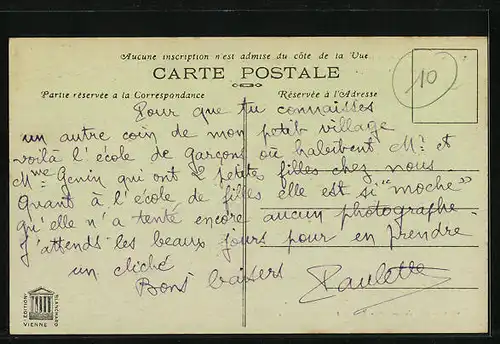 Aucune inscription n'est admise du côté de la Vue
CARTE POSTALE
Partie réservée à la Correspondance
Réservée à l'Adresse
10
Pour que tu connaisses
un autre coin de mon petit village
voilà l'école de Garçons où habitent Mr et
Mme Genin qui ont 2 petites filles chez nous
Quant à l'école de filles elle est si "moche"
qu'elle n'a tenté encore aucun photographe.
J'attends les beaux jours pour en prendre
un cliché
Bons baisers
Paulette
EDITION
BLANCHARD
VIENNE